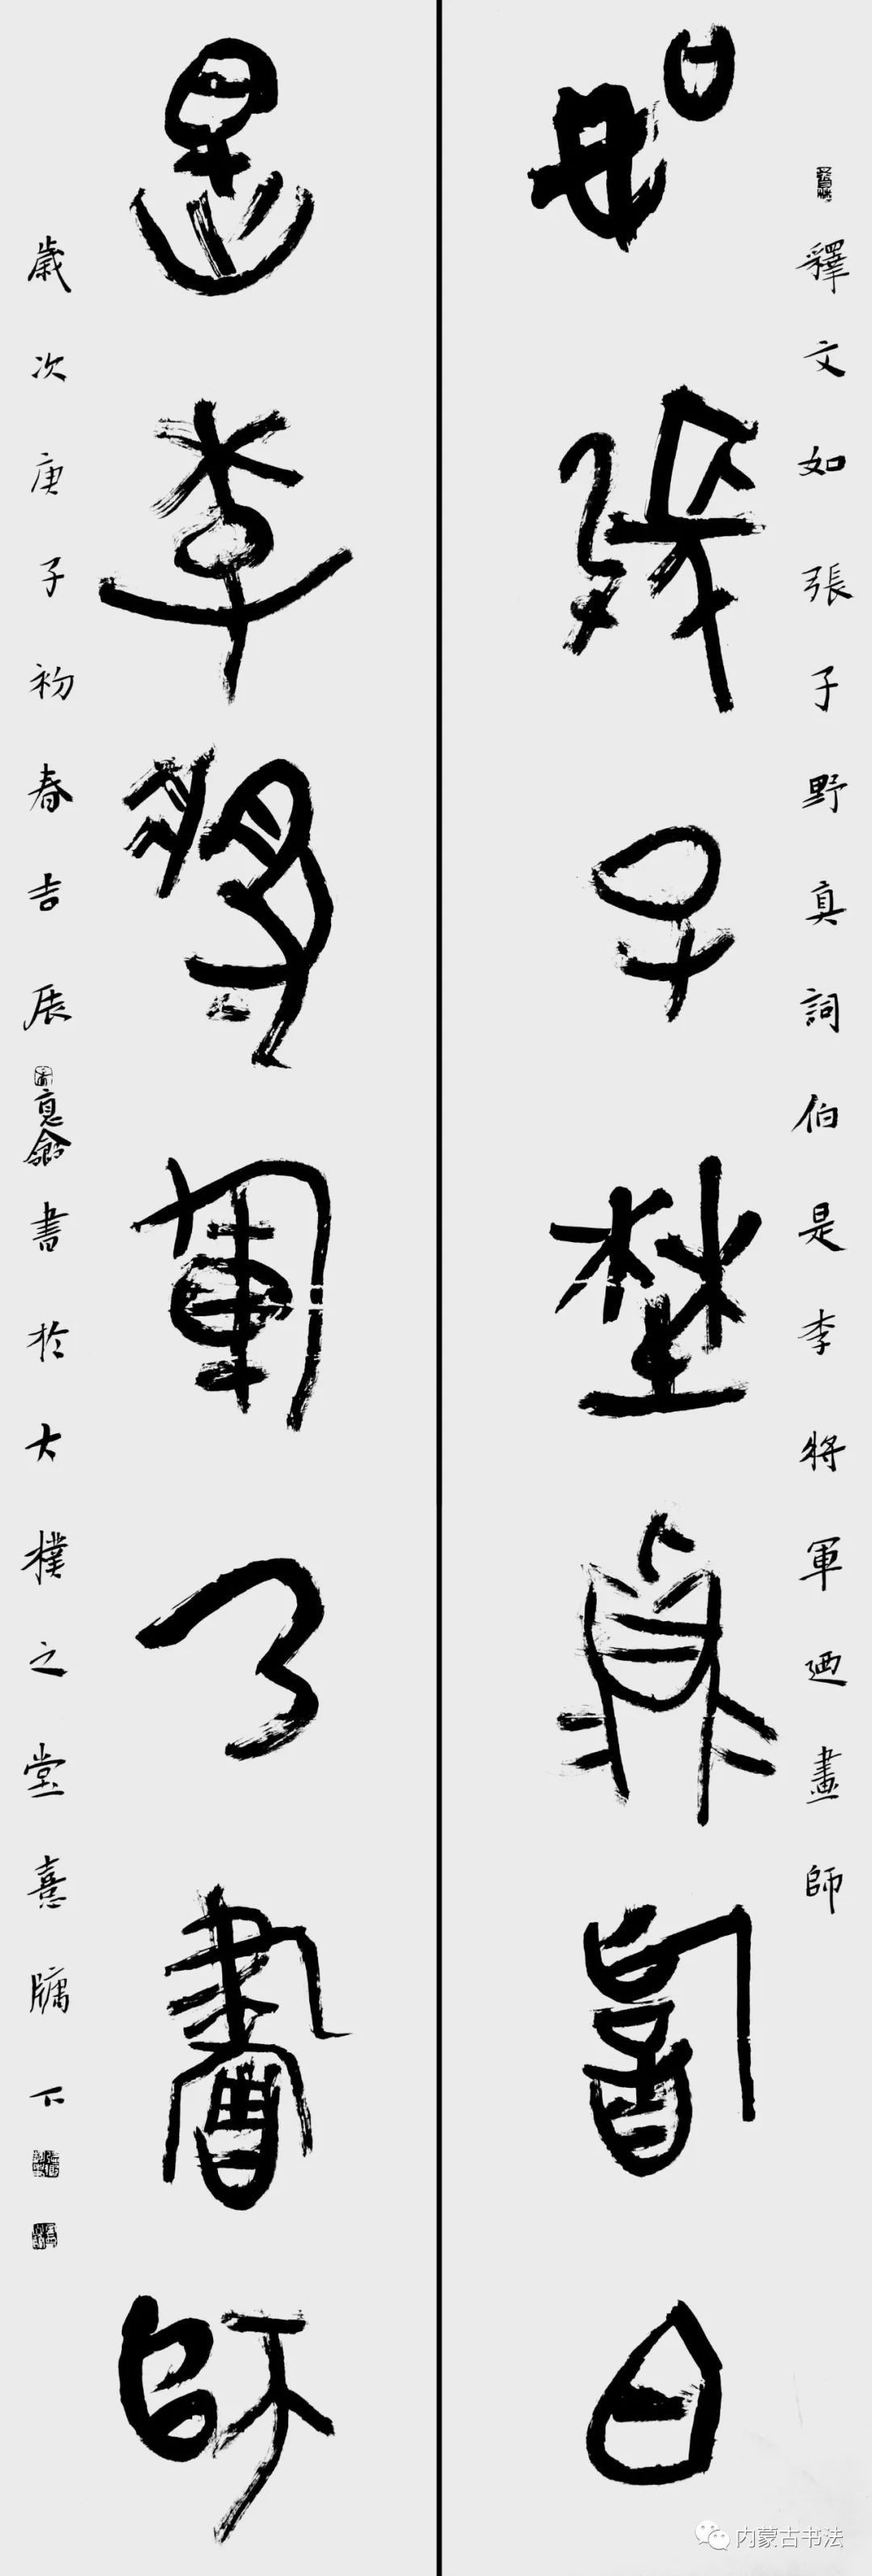 釋文如張子野真詞伯是李將軍迺畫師
如張子野真詞伯
是李將軍乃畫師
歲次庚子初春吉辰息翁書於大樸之堂熹牖下
内蒙古书法